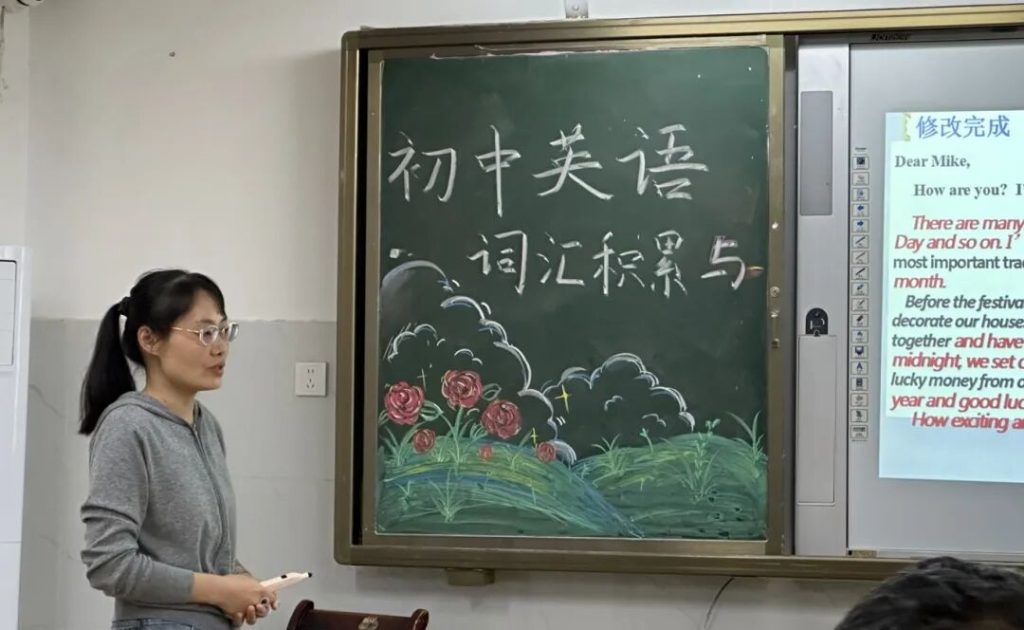 初中英语
词汇积累与
修改完成
Dear Mike,
How are you?
There are many
Day and so on. I'
most important tra
month.
Before the festiva
decorate our house
together and have
midnight, we set o
lucky money from o
year and good luc
How exciting a